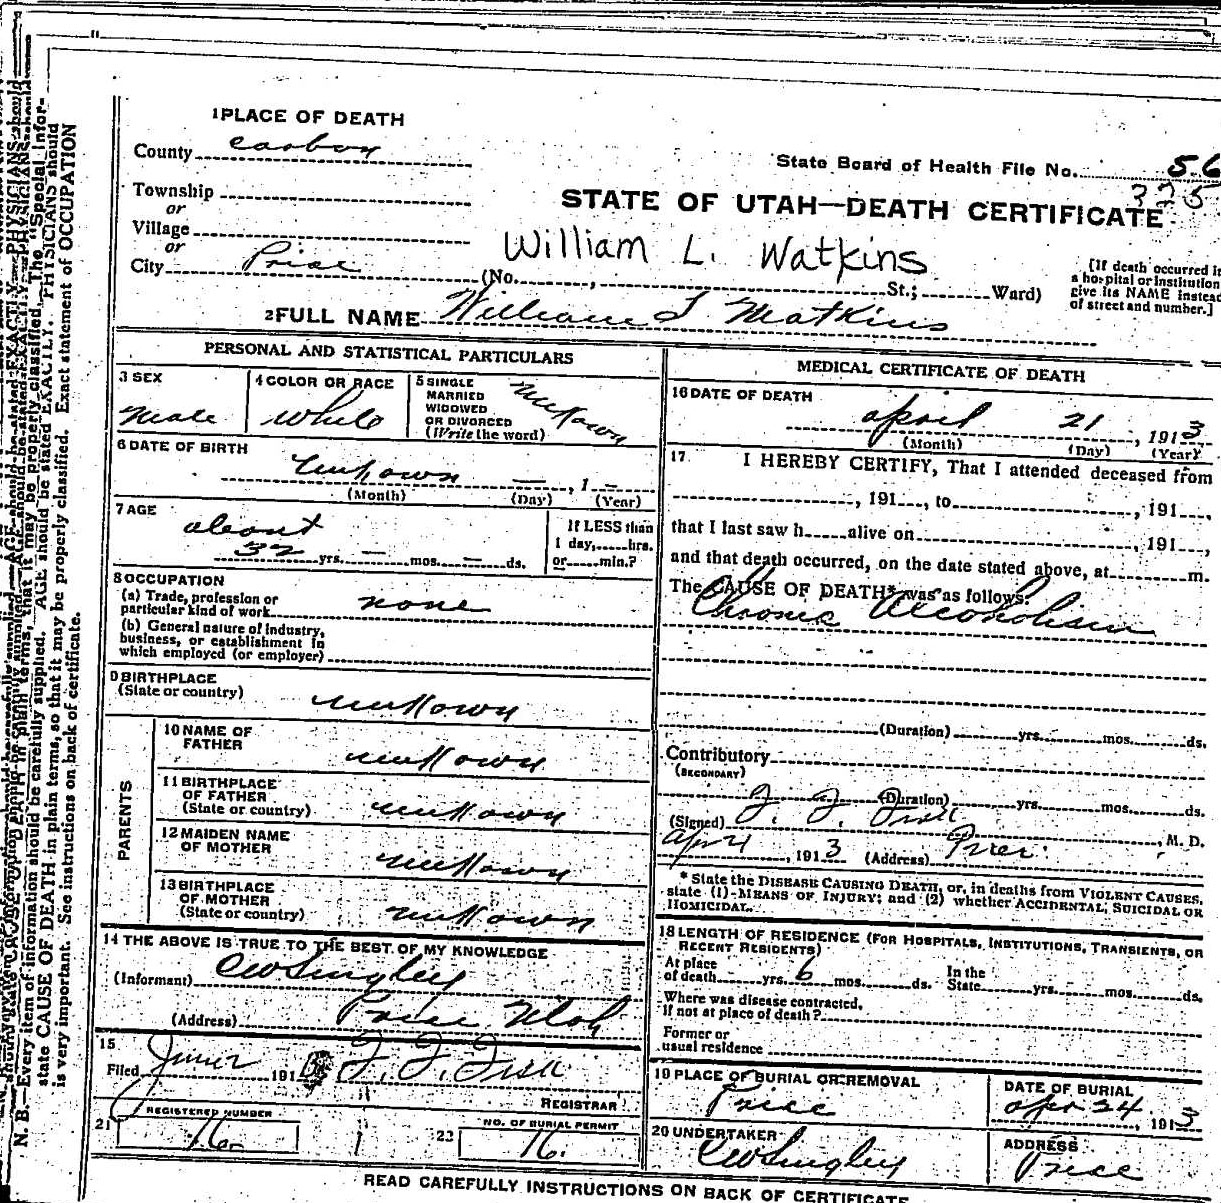 1 PLACE OF DEATH
County Carbon
State Board of Health File No. 56
335
Township
or
STATE OF UTAH—DEATH CERTIFICATE
Village
or
William L. Watkins
City Price (No. , St.; Ward)
[If death occurred in
a hospital or institution
give its NAME instead
of street and number.]
2 FULL NAME William L Watkins
PERSONAL AND STATISTICAL PARTICULARS
3 SEX
Male
4 COLOR OR RACE
White
5 SINGLE
MARRIED
WIDOWED
OR DIVORCED
(Write the word)
unknown
6 DATE OF BIRTH
unknown — , 1 —
(Month) (Day) (Year)
7 AGE
about
32 yrs. — mos. — ds.
If LESS than
1 day, hrs.
or min.?
8 OCCUPATION
(a) Trade, profession or
particular kind of work none
(b) General nature of industry,
business, or establishment in
which employed (or employer)
9 BIRTHPLACE
(State or country) unknown
PARENTS
10 NAME OF
FATHER unknown
11 BIRTHPLACE
OF FATHER
(State or country) unknown
12 MAIDEN NAME
OF MOTHER unknown
13 BIRTHPLACE
OF MOTHER
(State or country) unknown
14 THE ABOVE IS TRUE TO THE BEST OF MY KNOWLEDGE
(Informant) CW Singley
(Address) Price Utah
15
Filed 191 F. F. Fisk
REGISTRAR
21 REGISTERED NUMBER
16.
22 NO. OF BURIAL PERMIT
16.
MEDICAL CERTIFICATE OF DEATH
16 DATE OF DEATH
April 21 , 1913
(Month) (Day) (Year)
17 I HEREBY CERTIFY, That I attended deceased from
, 191 , to , 191 ,
that I last saw h alive on , 191 ,
and that death occurred, on the date stated above, at m.
The CAUSE OF DEATH* was as follows:
Chronic Alcoholism
(Duration) yrs. mos. ds.
Contributory
(SECONDARY)
(Duration) yrs. mos. ds.
(Signed) F. F. Fisk , M. D.
Apr 21 , 1913 (Address) Price
* State the DISEASE CAUSING DEATH, or, in deaths from VIOLENT CAUSES,
state (1) MEANS OF INJURY; and (2) whether ACCIDENTAL, SUICIDAL OR
HOMICIDAL.
18 LENGTH OF RESIDENCE (FOR HOSPITALS, INSTITUTIONS, TRANSIENTS, OR
RECENT RESIDENTS)
At place
of death yrs. 6 mos. ds.
In the
State yrs. mos. ds.
Where was disease contracted,
if not at place of death?
Former or
usual residence
19 PLACE OF BURIAL OR REMOVAL
Price
DATE OF BURIAL
Apr 24 , 1913
20 UNDERTAKER
CW Singley
ADDRESS
Price
READ CAREFULLY INSTRUCTIONS ON BACK OF CERTIFICATE
N. B.—Every item of information should be carefully supplied. AGE should be stated EXACTLY. PHYSICIANS should
state CAUSE OF DEATH in plain terms, so that it may be properly classified. Exact statement of OCCUPATION
is very important. See instructions on back of certificate.